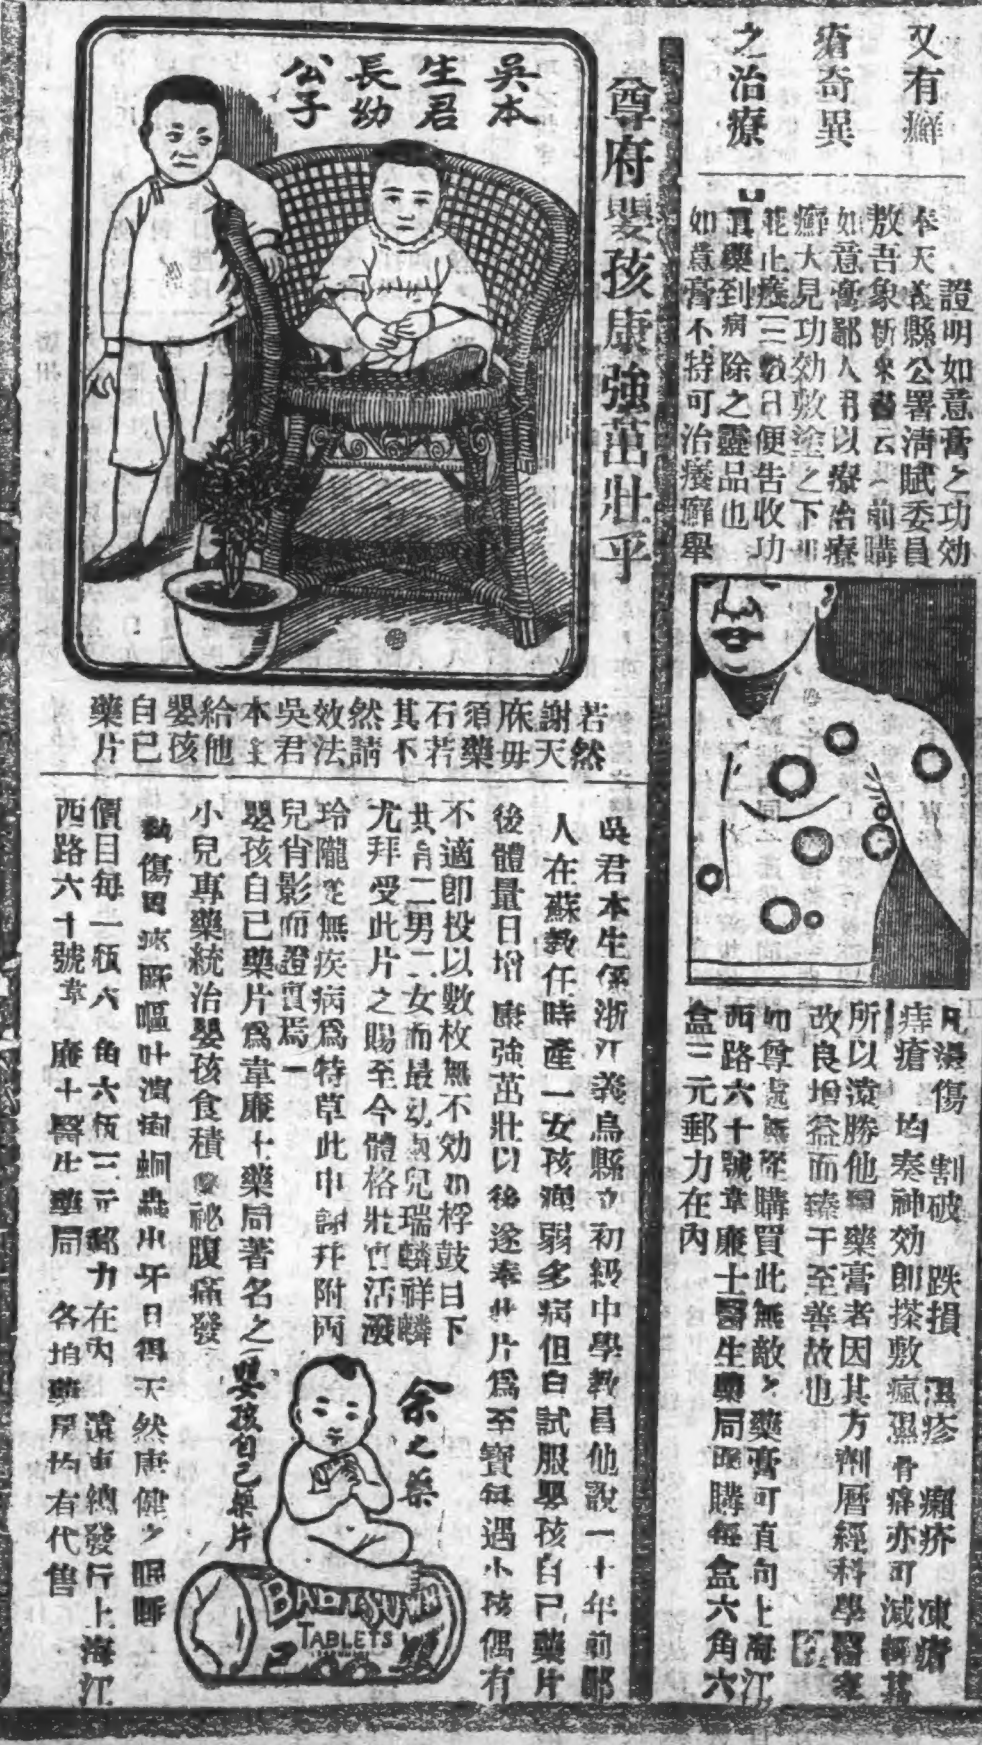 又有癬
瘡奇異
之治療
證明如意膏之功効
奉天義縣公署清賦委員
敖吾象新來書云前購
如意膏鄙人用以療治療
癬大見功効敷塗之下
能止癢三數日便告收功
眞藥到病除之靈品也
如意膏不特可治癢癬舉
凡湯傷 割破 跌損 濕疹 癩疥 凍瘡
痔瘡 均奏神効即搽敷瘋濕骨痛亦可減輕其
所以遠勝他種藥膏者因其方劑曆經科學醫家
改良增益而臻于至善故也
如尊處無從購買此無敵之藥膏可直向上海江
西路六十號韋廉士醫生藥局函購每盒六角六
盒三元郵力在內
尊府嬰孩康強茁壯乎
吳本
生君
長幼
公子
若然
謝天
庥毋
須藥
石若
其不
然請
效法
吳君
本生
給他
嬰孩
自己
藥片
吳君本生係浙江義烏縣立初級中學教員他說一十年前鄙
人在蘇教任時產一女孩瘦弱多病但自試服嬰孩自己藥片
後體量日增 康強茁壯以後遂奉此片爲至寶每遇小孩偶有
不適即投以數枚無不効如桴鼓目下
共有二男二女而最幼兩兒瑞麟祥麟
尤拜受此片之賜至今體格壯實活潑
玲瓏從無疾病爲特草此申謝并附兩
兒肖影而證實焉一
嬰孩自己藥片爲韋廉士藥局著名之
小兒專藥統治嬰孩食積 便祕腹痛發
傷風 嘔吐 蛔蟲出牙日得天然康健之
價目每一瓶六角六瓶三元郵力在內 遠東總發行上海江
西路六十號韋廉士醫生藥局 各埠藥房均有代售
余之藥
嬰孩自己藥片
BABY'S OWN
TABLETS